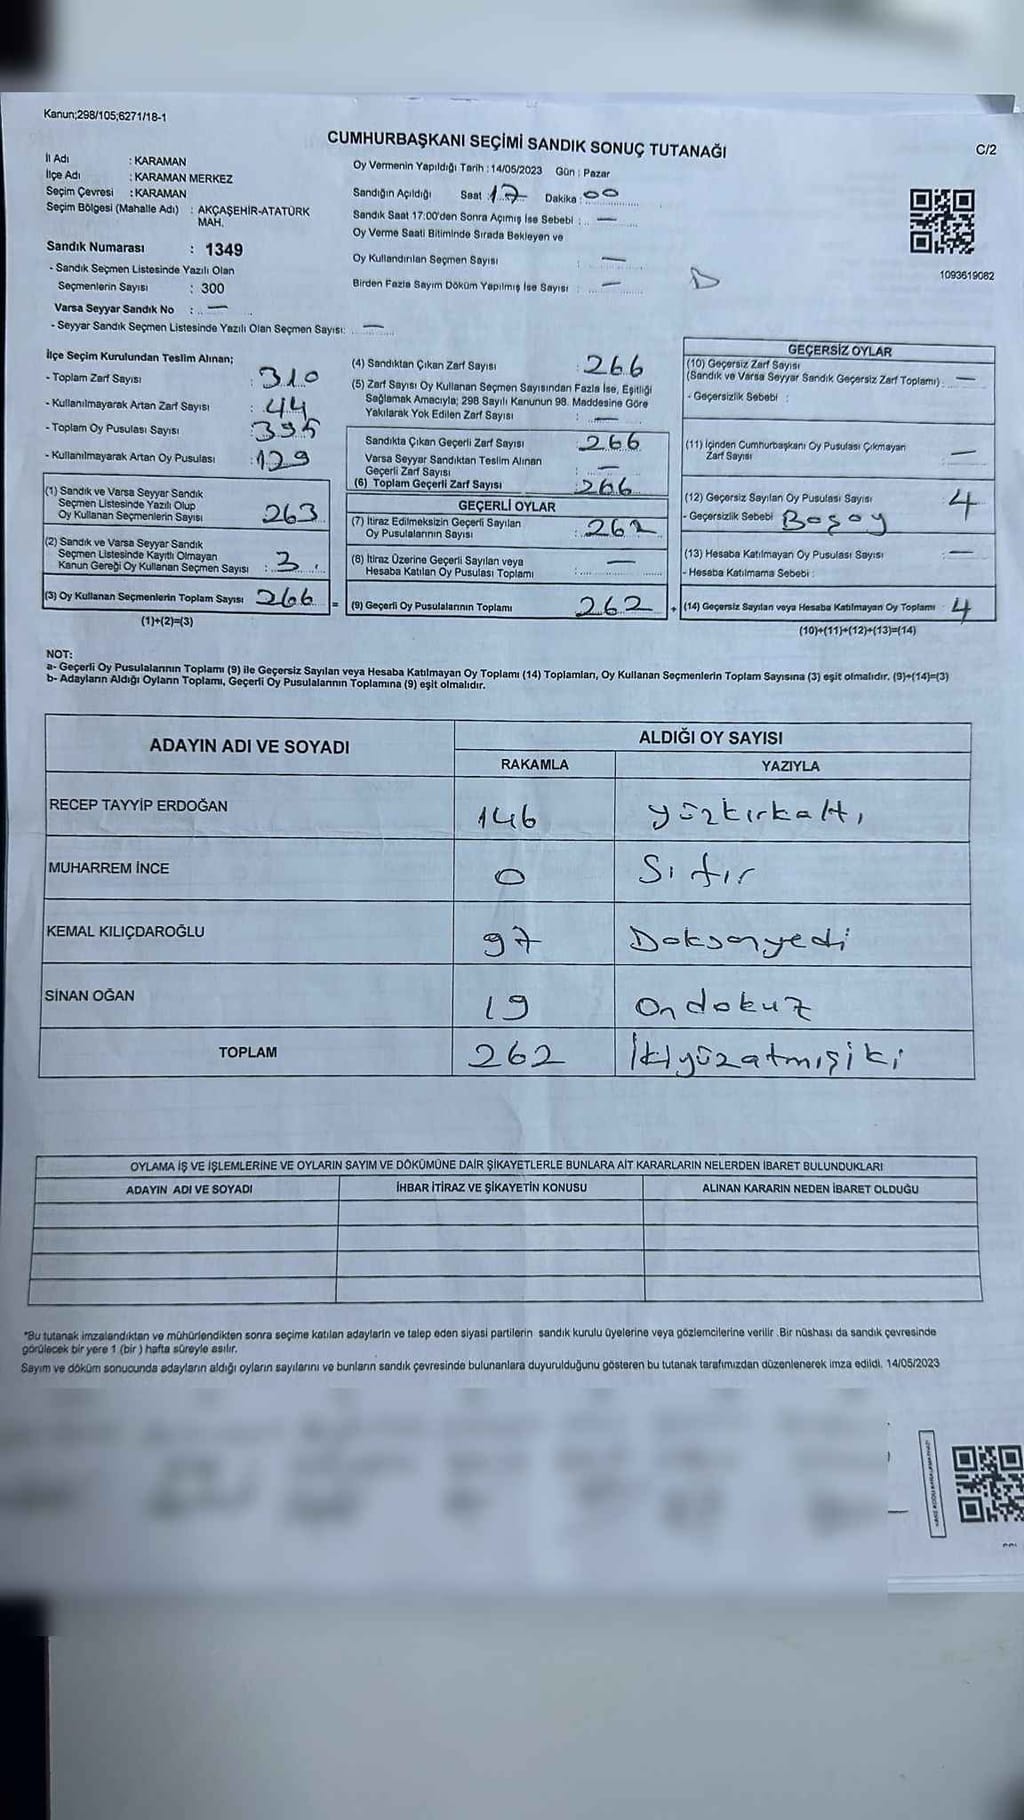 Kanun;298/105;6271/18-1
CUMHURBAŞKANI SEÇİMİ SANDIK SONUÇ TUTANAĞI
C/2
İl Adı : KARAMAN
İlçe Adı : KARAMAN MERKEZ
Seçim Çevresi : KARAMAN
Seçim Bölgesi (Mahalle Adı) : AKÇAŞEHİR-ATATÜRK
MAH.
Sandık Numarası : 1349
- Sandık Seçmen Listesinde Yazılı Olan
Seçmenlerin Sayısı : 300
Varsa Seyyar Sandık No : —
- Seyyar Sandık Seçmen Listesinde Yazılı Olan Seçmen Sayısı: —
Oy Vermenin Yapıldığı Tarih : 14/05/2023 Gün : Pazar
Sandığın Açıldığı Saat : 17 Dakika : 00
Sandık Saat 17:00'den Sonra Açımış İse Sebebi : —
Oy Verme Saati Bitiminde Sırada Bekleyen ve
Oy Kullandırılan Seçmen Sayısı : —
Birden Fazla Sayım Döküm Yapılmış İse Sayısı : —
1093619082
İlçe Seçim Kurulundan Teslim Alınan;
- Toplam Zarf Sayısı : 310
- Kullanılmayarak Artan Zarf Sayısı : 44
- Toplam Oy Pusulası Sayısı : 395
- Kullanılmayarak Artan Oy Pusulası : 129
(1) Sandık ve Varsa Seyyar Sandık
Seçmen Listesinde Yazılı Olup
Oy Kullanan Seçmenlerin Sayısı : 263
(2) Sandık ve Varsa Seyyar Sandık
Seçmen Listesinde Kayıtlı Olmayan
Kanun Gereği Oy Kullanan Seçmen Sayısı : 3
(3) Oy Kullanan Seçmenlerin Toplam Sayısı : 266
(1)+(2)=(3)
=
(4) Sandıktan Çıkan Zarf Sayısı : 266
(5) Zarf Sayısı Oy Kullanan Seçmen Sayısından Fazla İse, Eşitliği
Sağlamak Amacıyla; 298 Sayılı Kanunun 98. Maddesine Göre
Yakılarak Yok Edilen Zarf Sayısı : —
Sandıkta Çıkan Geçerli Zarf Sayısı : 266
Varsa Seyyar Sandıktan Teslim Alınan
Geçerli Zarf Sayısı : —
(6) Toplam Geçerli Zarf Sayısı : 266
GEÇERLİ OYLAR
(7) İtiraz Edilmeksizin Geçerli Sayılan
Oy Pusulalarının Sayısı : 262
(8) İtiraz Üzerine Geçerli Sayılan veya
Hesaba Katılan Oy Pusulası Toplamı : —
(9) Geçerli Oy Pusulalarının Toplamı 262
+
GEÇERSİZ OYLAR
(10) Geçersiz Zarf Sayısı
(Sandık ve Varsa Seyyar Sandık Geçersiz Zarf Toplamı) : —
- Geçersizlik Sebebi :
(11) İçinden Cumhurbaşkanı Oy Pusulası Çıkmayan
Zarf Sayısı : —
(12) Geçersiz Sayılan Oy Pusulası Sayısı : 4
- Geçersizlik Sebebi Boşoy
(13) Hesaba Katılmayan Oy Pusulası Sayısı : —
- Hesaba Katılmama Sebebi :
(14) Geçersiz Sayılan veya Hesaba Katılmayan Oy Toplamı : 4
(10)+(11)+(12)+(13)=(14)
NOT:
a- Geçerli Oy Pusulalarının Toplamı (9) ile Geçersiz Sayılan veya Hesaba Katılmayan Oy Toplamı (14) Toplamları, Oy Kullanan Seçmenlerin Toplam Sayısına (3) eşit olmalıdır. (9)+(14)=(3)
b- Adayların Aldığı Oyların Toplamı, Geçerli Oy Pusulalarının Toplamına (9) eşit olmalıdır.
ADAYIN ADI VE SOYADI
ALDIĞI OY SAYISI
RAKAMLA YAZIYLA
RECEP TAYYİP ERDOĞAN 146 yüzkırkaltı
MUHARREM İNCE 0 Sıfır
KEMAL KILIÇDAROĞLU 97 Doksanyedi
SİNAN OĞAN 19 Ondokuz
TOPLAM 262 İkiyüzatmışiki
OYLAMA İŞ VE İŞLEMLERİNE VE OYLARIN SAYIM VE DÖKÜMÜNE DAİR ŞİKAYETLERLE BUNLARA AİT KARARLARIN NELERDEN İBARET BULUNDUKLARI
ADAYIN ADI VE SOYADI İHBAR İTİRAZ VE ŞİKAYETİN KONUSU ALINAN KARARIN NEDEN İBARET OLDUĞU
*Bu tutanak imzalandıktan ve mühürlendikten sonra seçime katılan adayların ve talep eden siyasi partilerin sandık kurulu üyelerine veya gözlemcilerine verilir .Bir nüshası da sandık çevresinde
görülecek bir yere 1 (bir ) hafta süreyle asılır.
Sayım ve döküm sonucunda adayların aldığı oyların sayılarını ve bunların sandık çevresinde bulunanlara duyurulduğunu gösteren bu tutanak tarafımızdan düzenlenerek imza edildi. 14/05/2023